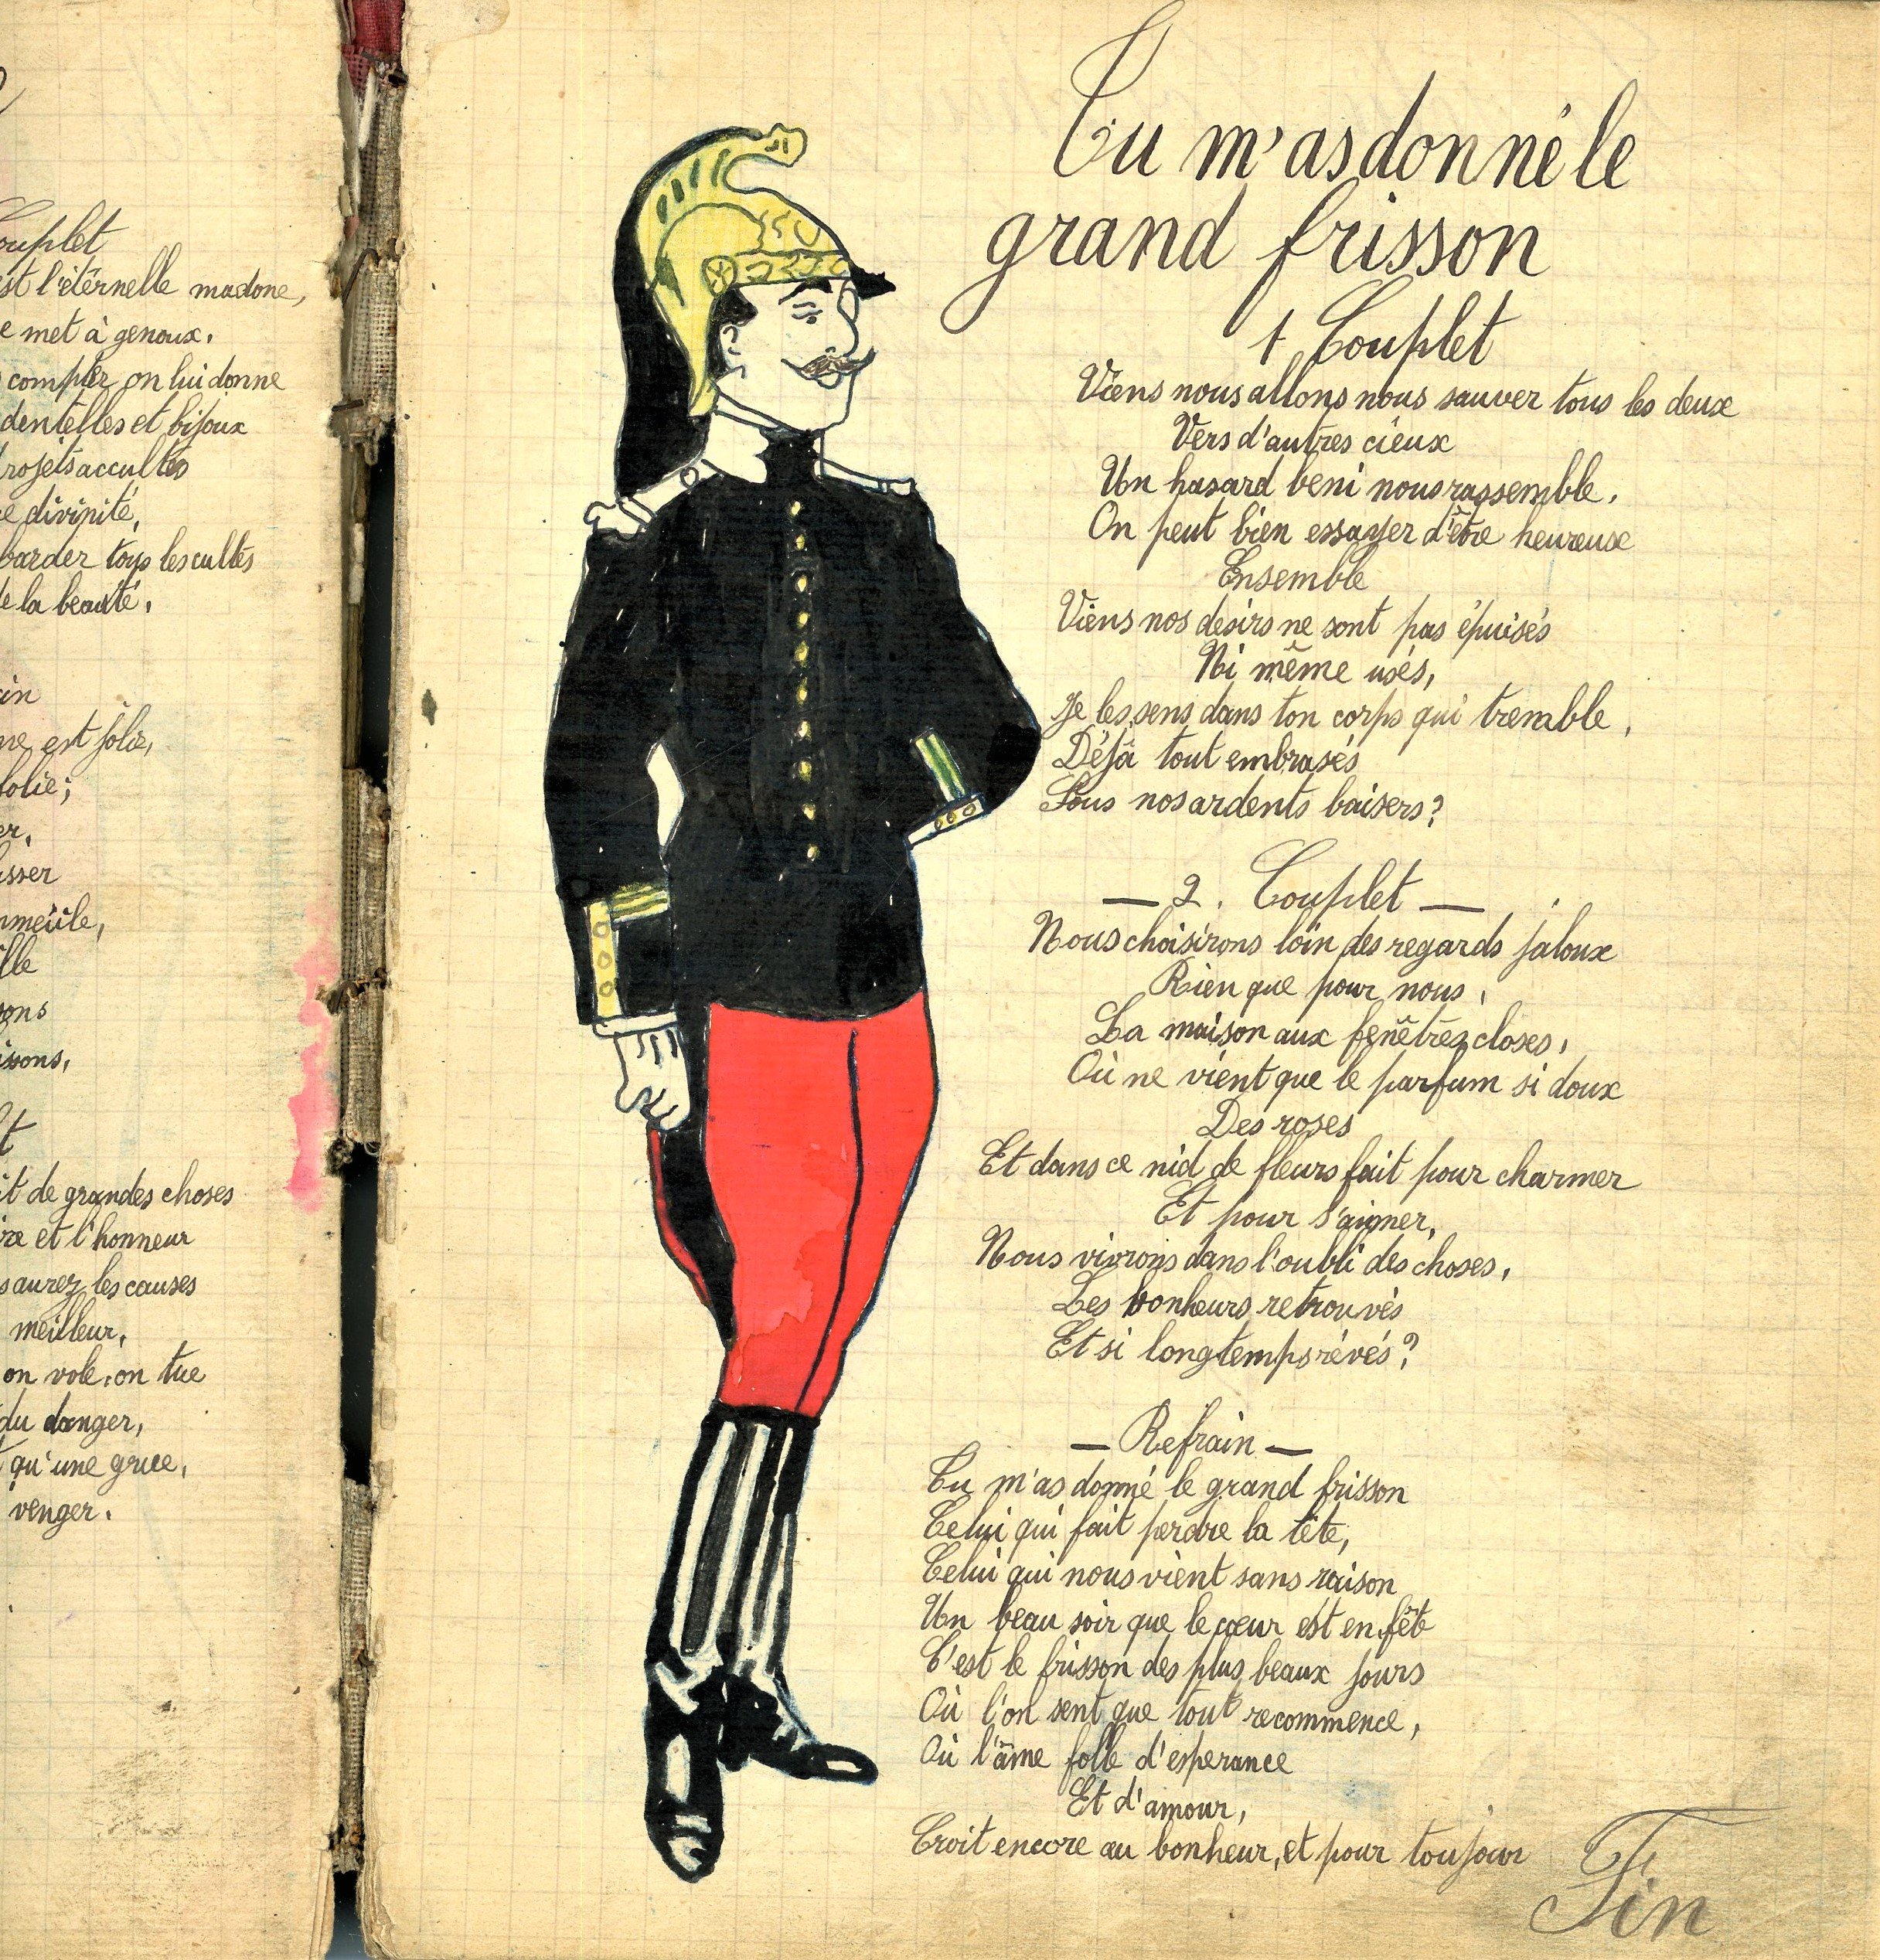 Couplet
est l'étérnelle madone,
e met à genoux.
compter on lui donne
dentelles et bijoux
Projets accultes
ce divinité,
barder tous les cultes
de la beauté.
ain
me est jolie,
folie;
er.
isser
meule,
lle
sons
issons,
t
it de grandes choses
ire et l'honneur
s aurez les causes
meilleur,
on vole, on tue
du danger,
qu'une grue,
venger.
Tu m'as donné le
grand frisson
1 Couplet
Viens nous allons nous sauver tous les deux
Vers d'autres cieux
Un hasard beni nous rassemble.
On peut bien essayer d'être heureuse
Ensemble
Viens nos desirs ne sont pas épuisés
Ni même usés,
Je les sens dans ton corps qui tremble.
Déjà tout embrasés
Sous nos ardents baisers?
— 2. Couplet —
Nous choisirons loin des regards jaloux
Rien que pour nous,
La maison aux fenêtres closes,
Où ne vient que le parfum si doux
Des roses
Et dans ce nid de fleurs fait pour charmer
Et pour s'aigner,
Nous vivrons dans l'oubli des choses,
Les bonheurs retrouvés
Et si longtemps révés?
— Refrain —
Tu m'as donné le grand frisson
Celui qui fait perdre la tête,
Celui qui nous vient sans raison
Un beau soir que le cœur est en fête
C'est le frisson des plus beaux jours
Où l'on sent que tout recommence,
Où l'âme folle d'esperance
Et d'amour,
Croit encore au bonheur, et pour toujour
Fin